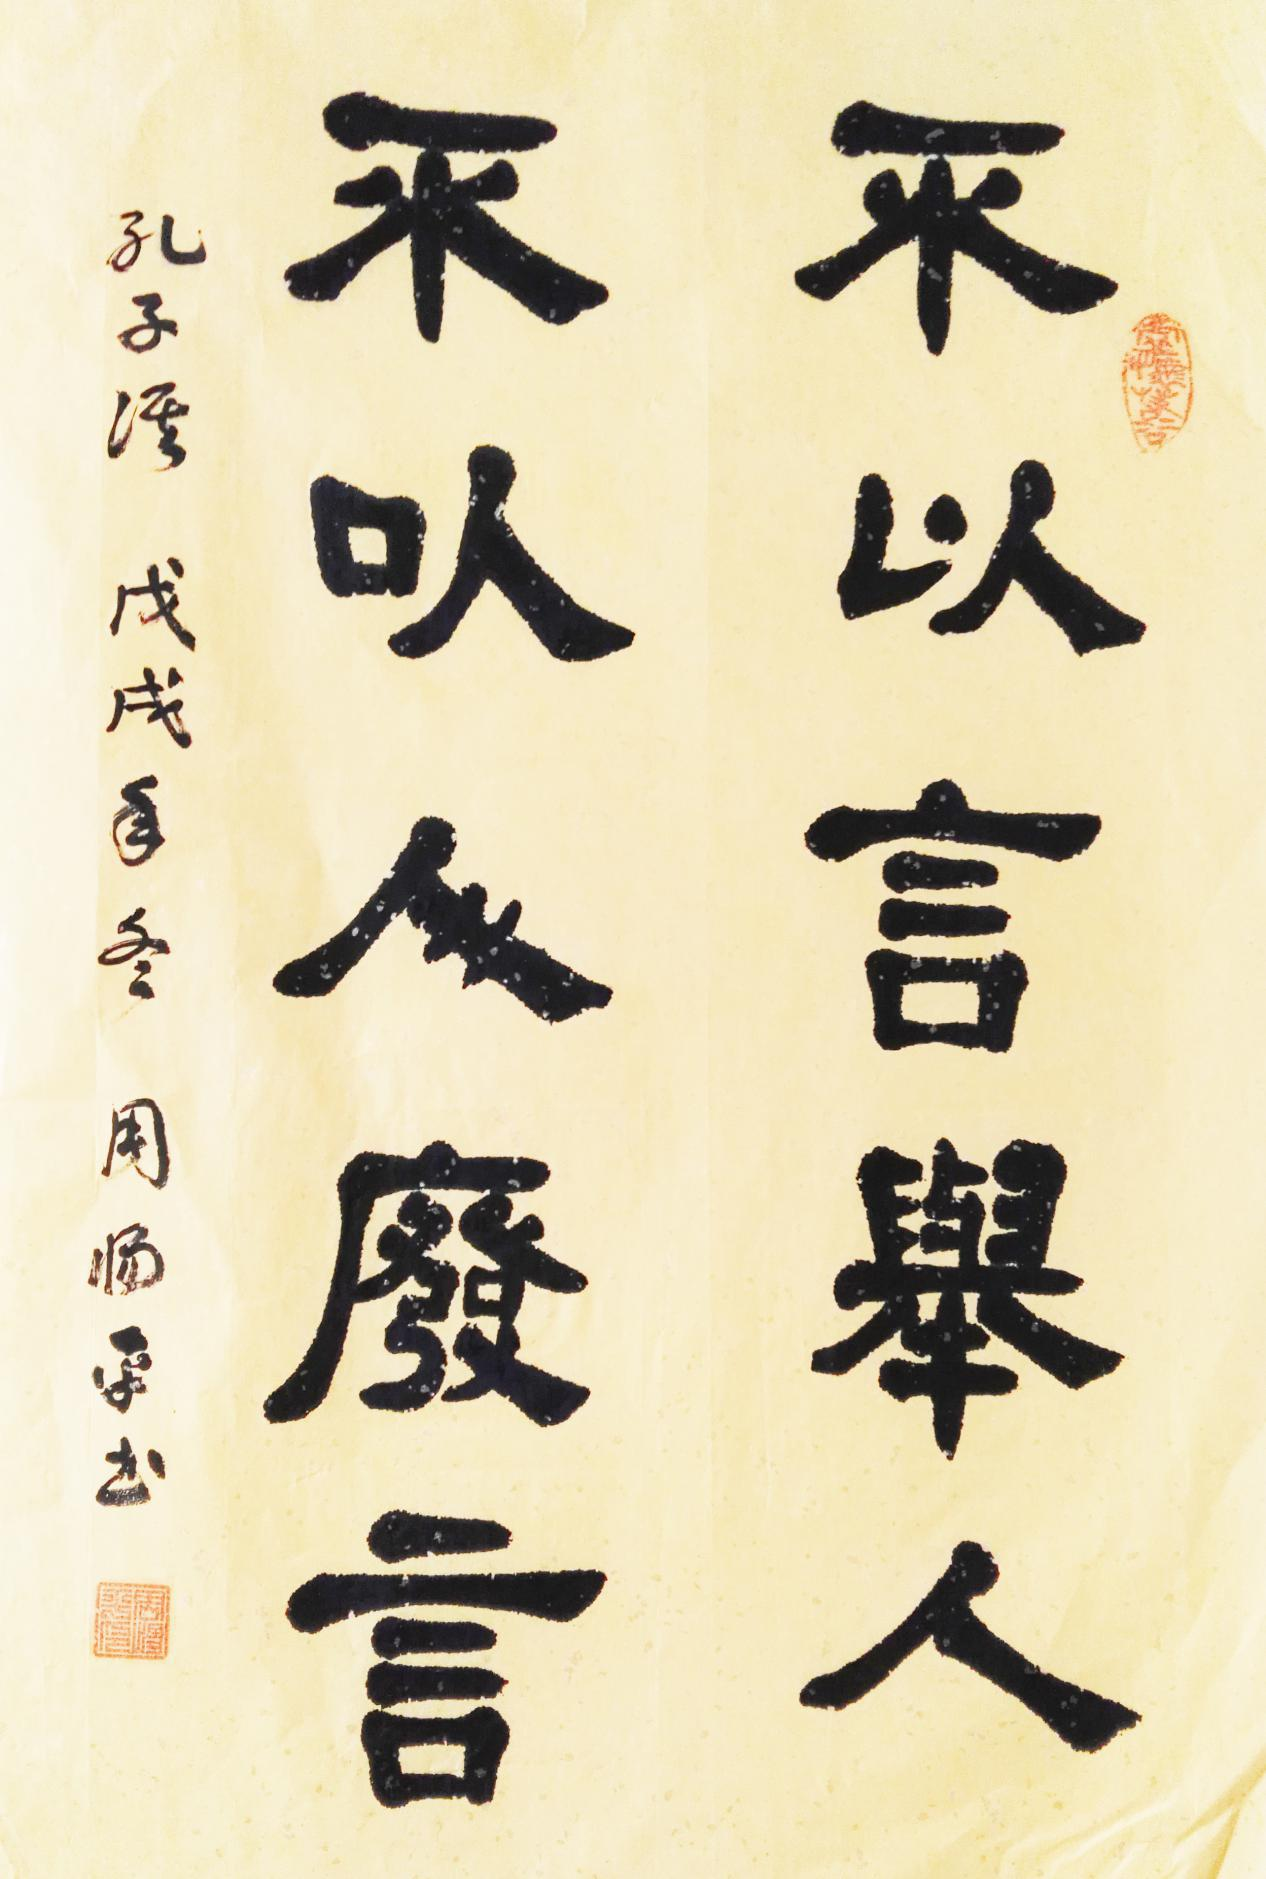 不以言舉人
不以人廢言
孔子漢 戊戌年冬 周陽平书